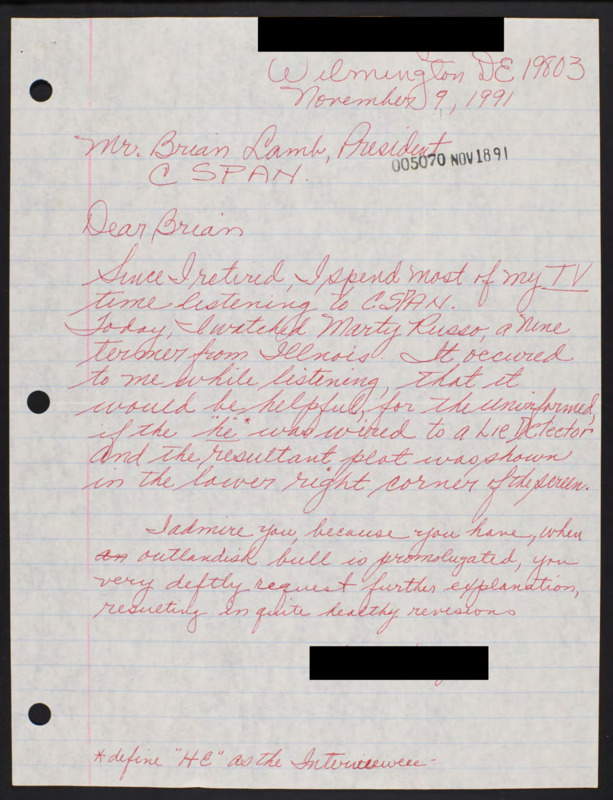 Wilmington DE 19803
November 9, 1991
Mr. Brian Lamb, President
005070 NOV 18 91
C SPAN.
Dear Brian
Since I retired, I spend most of my TV
time listening to C SPAN.
Today, I watched Marty Russo, a nine
termer from Illnois. It occured
to me while listening, that it
would be helpful, for the uninformed,
if the "he" was wired to a Lie Detector
and the resultant plot was shown
in the lower right corner of the screen.
I admire you, because you have, when
an outlandish bull is promolugated, you
very deftly request further explanation,
resulting in quite healthy revisions
*define "HE" as the Interviewee-